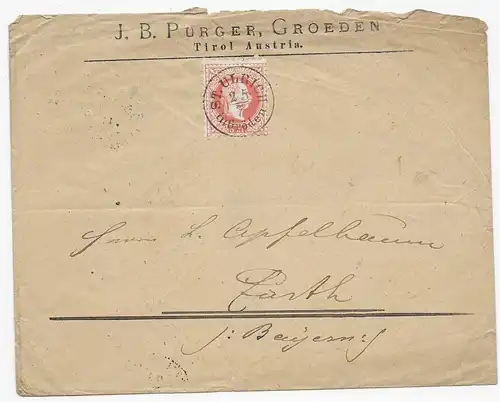 J. B. PURGER, GROEDEN
Tirol Austria.
ST. ULRICH
2 5
Gröden
Herrn L. Apfelbaum
Fürth
/: Bayern :/